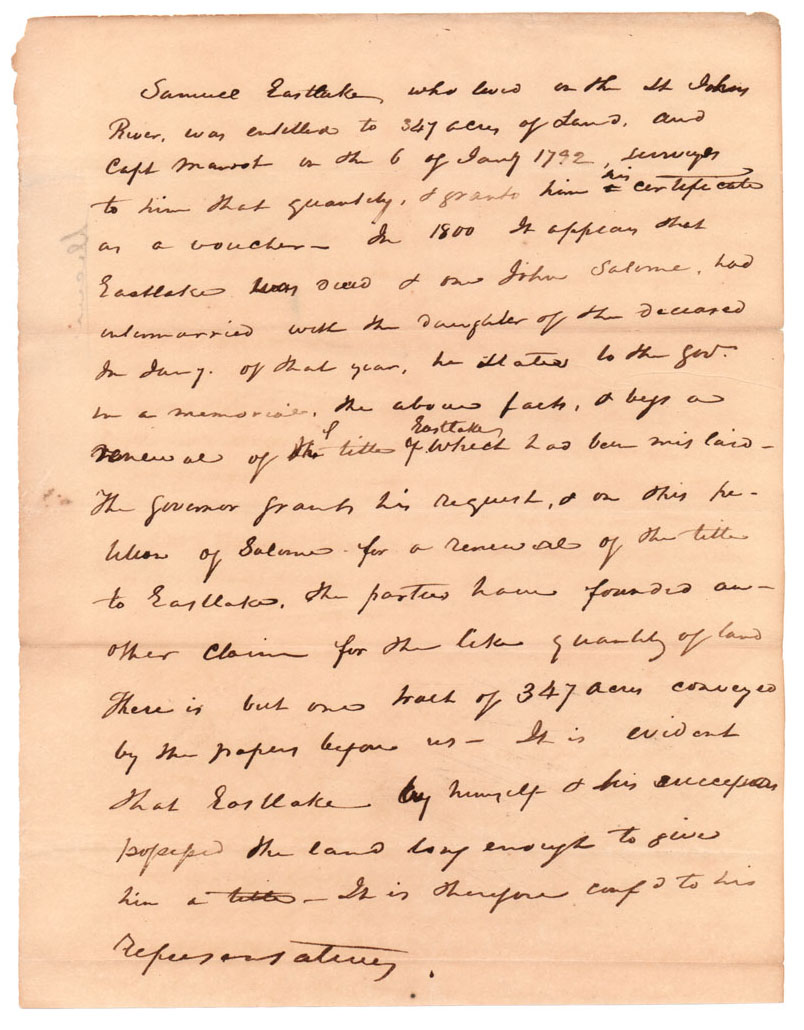 Samuel Eastlake who lived on the St Johns
River, was entitled to 347 acres of Land, and
Capt Marrot on the 6 of Jany 1792, surveys
to him that quantity, & grants him his certificate
as a voucher — In 1800 It appears that
Eastlake was dead & one John Salome, had
intermarried with the daughter of the deceased
In Jany. of that year, he states to the Govr.
in a memorial, the above facts, & begs a
renewal of the title of Eastlake which had been mislaid —
The Governor grants his request, & on this pe-
tition of Salome for a renewal of the title
to Eastlake, the parties have founded an-
other claim for the like quantity of land
There is but one tract of 347 acres conveyed
by the papers before us — It is evident
that Eastlake by himself & his successors
possessed the land long enough to give
him a title — It is therefore conf'd to his
representatives.